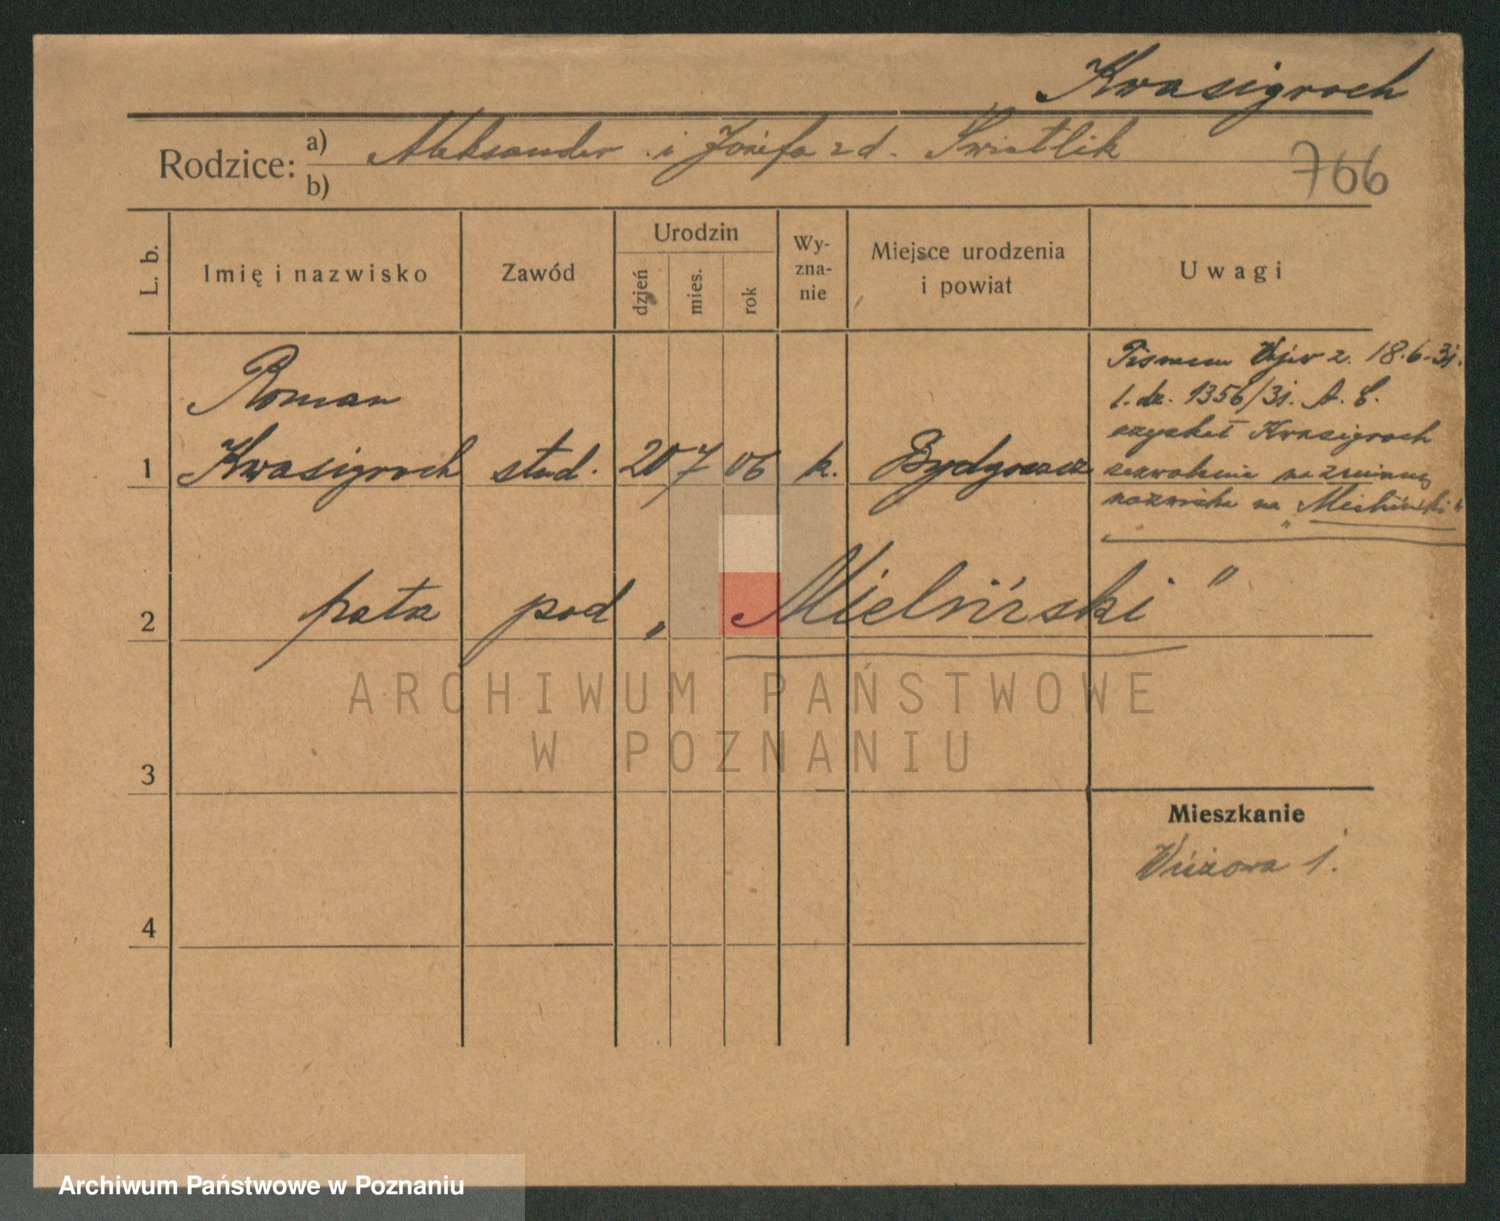 Kwasigroch
Rodzice: a) Aleksander i Józefa z d. Świetlik
b)
766
L. b.
Imię i nazwisko
Zawód
Urodzin
dzień
mies.
rok
Wy-
zna-
nie
Miejsce urodzenia
i powiat
Uwagi
Roman
1 Kwasigroch stud. 20 7 06 k. Bydgoszcz
Pismem Wojw z. 18.6.31.
l. dz. 1356/31. A. C.
uzyskał Kwasigroch
zezwolenie na zmianę
nazwiska na „Mieliński"
2 patrz pod „Mieliński"
ARCHIWUM PAŃSTWOWE
W POZNANIU
3
Mieszkanie
1.
4
Archiwum Państwowe w Poznaniu